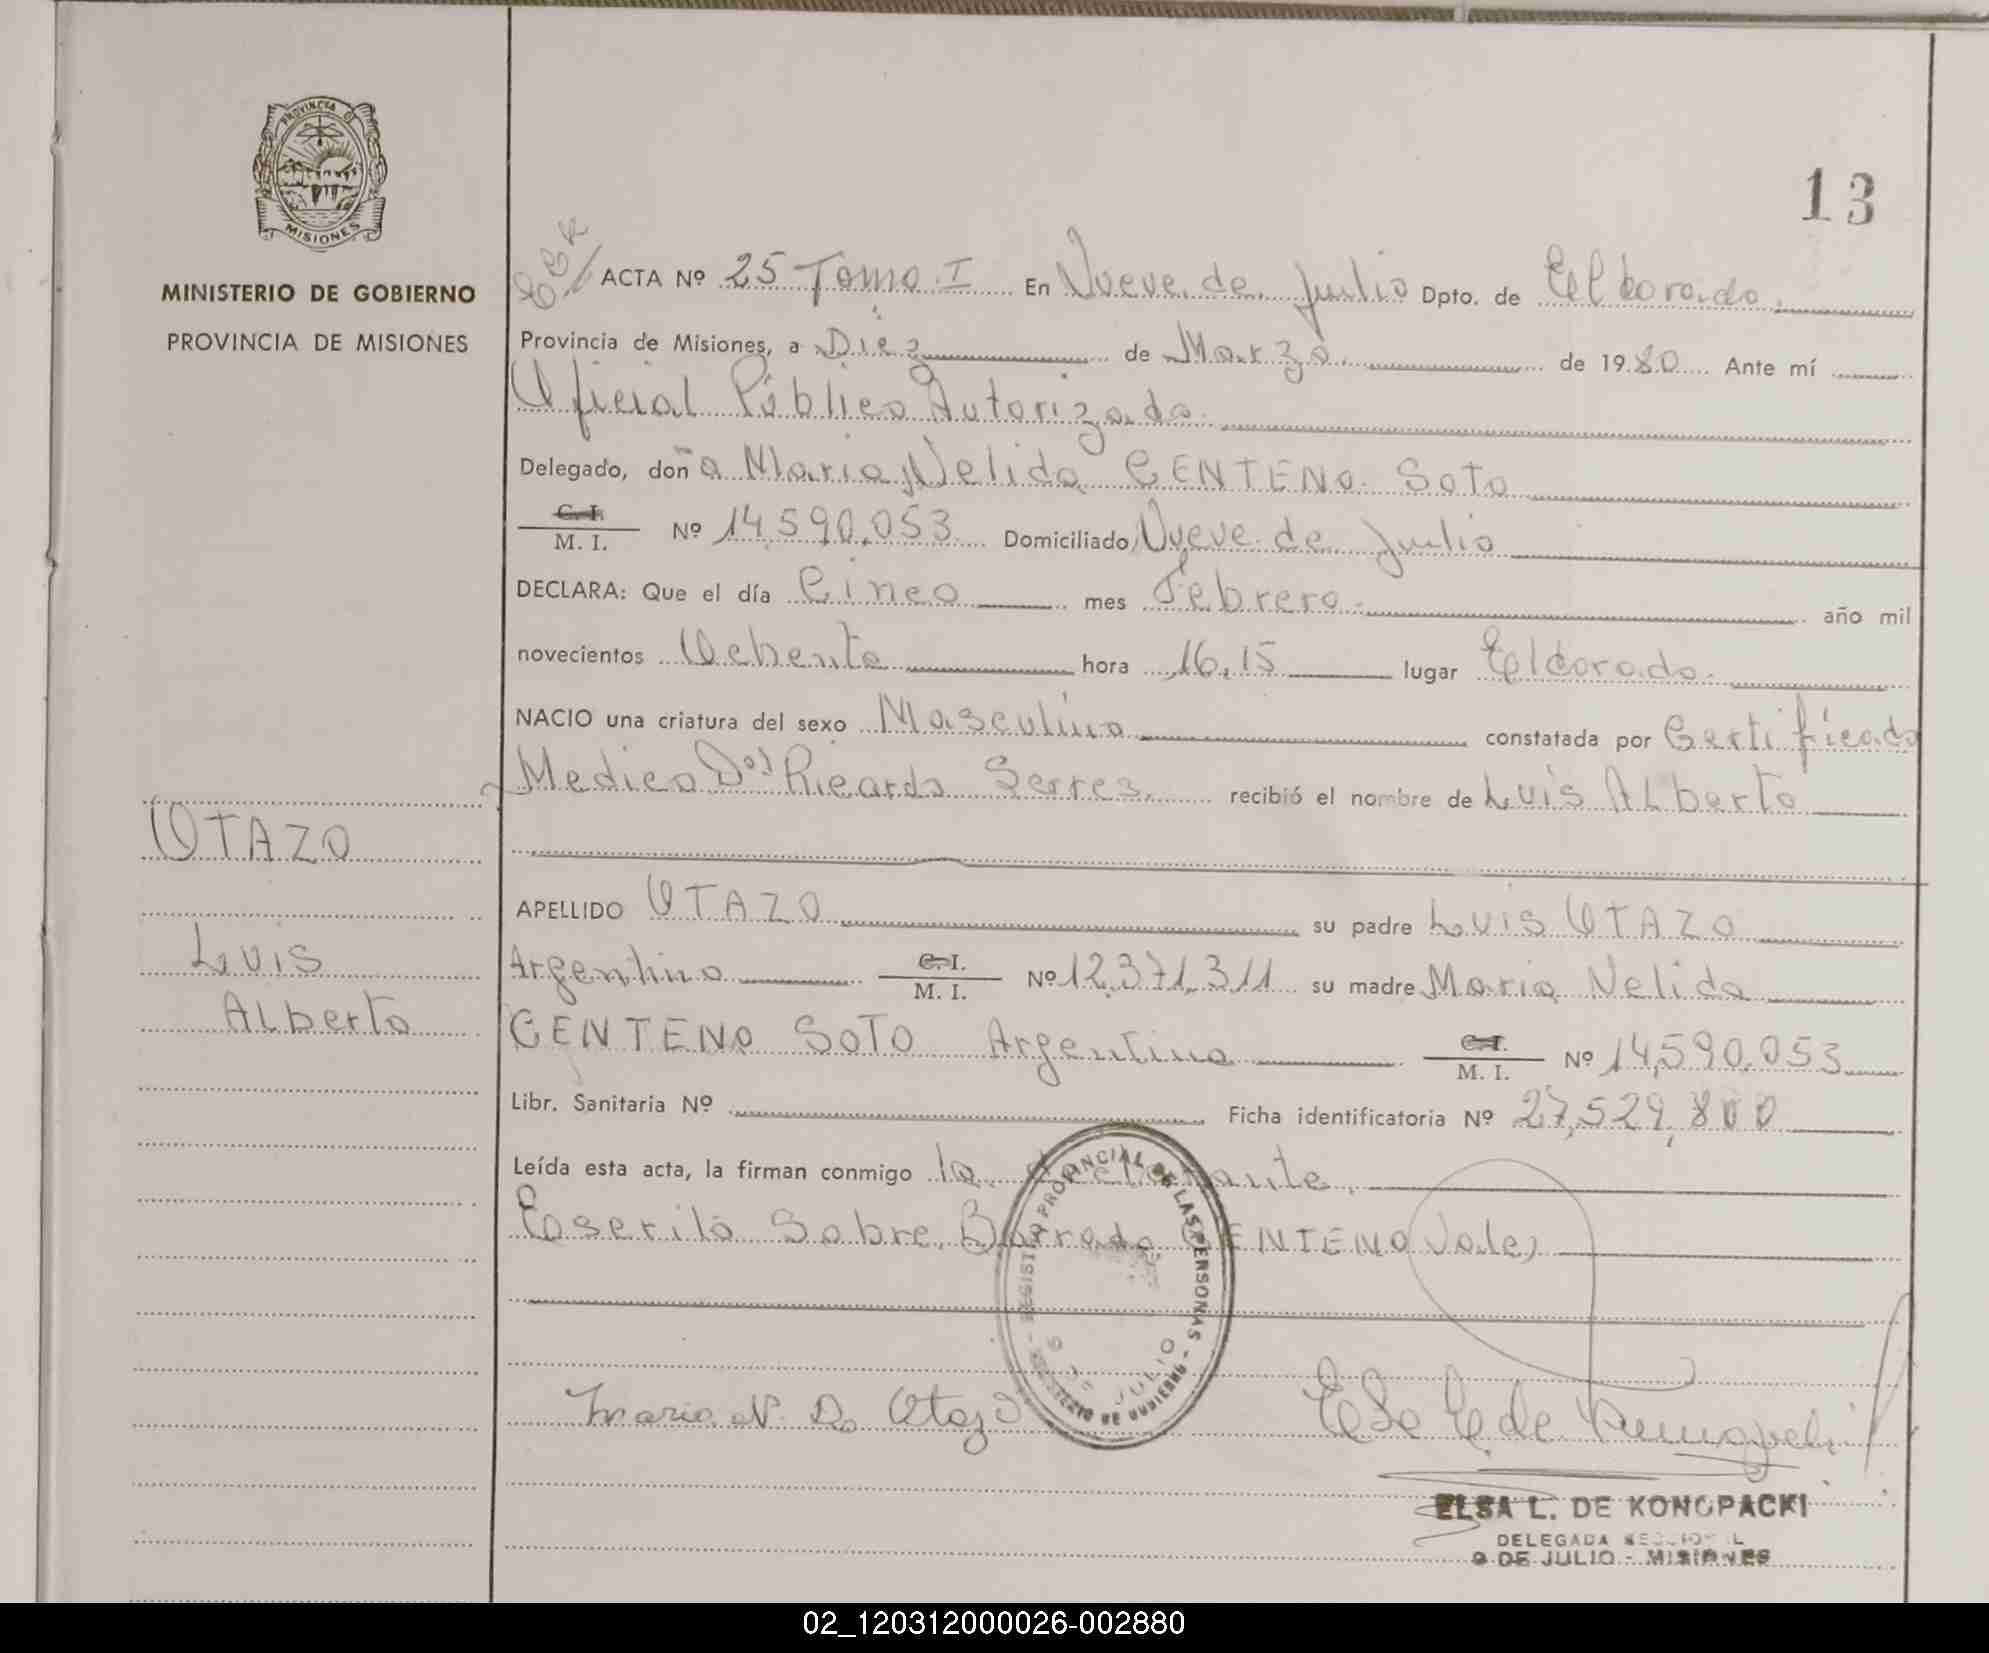 PROVINCIA DE
MISIONES
MINISTERIO DE GOBIERNO
PROVINCIA DE MISIONES
OTAZO
Luis
Alberto
13
ACTA Nº 25 Tomo I En Nueve de Julio Dpto. de Eldorado
Provincia de Misiones, a Diez de Marzo de 1980 Ante mí
Oficial Público Autorizado
Delegado, doña Maria Nelida CENTENO SOTO
C. I.
M. I. Nº 14.590.053 Domiciliado Nueve de Julio
DECLARA: Que el día Cinco mes Febrero año mil
novecientos Ochenta hora 16,15 lugar Eldorado
NACIO una criatura del sexo Masculino constatada por Certificado
Medico Ricardo Serres recibió el nombre de Luis Alberto
APELLIDO OTAZO su padre Luis OTAZO
Argentino C. I. M. I. Nº 12.371.311 su madre Maria Nelida
CENTENO SOTO Argentina C. I. M. I. Nº 14,590.053
Libr. Sanitaria Nº Ficha identificatoria Nº 27,529,800
Leída esta acta, la firman conmigo la declarante
Escrito Sobre Borrado CENTENO Vale,
REGISTRO PROVINCIAL DE LAS PERSONAS - MINISTERIO DE GOBIERNO -
9 DE JULIO
Maria N. De Otazo
ELSA L. DE KONOPACKI
DELEGADA SECCIONAL
9 DE JULIO - MISIONES
02_120312000026-002880